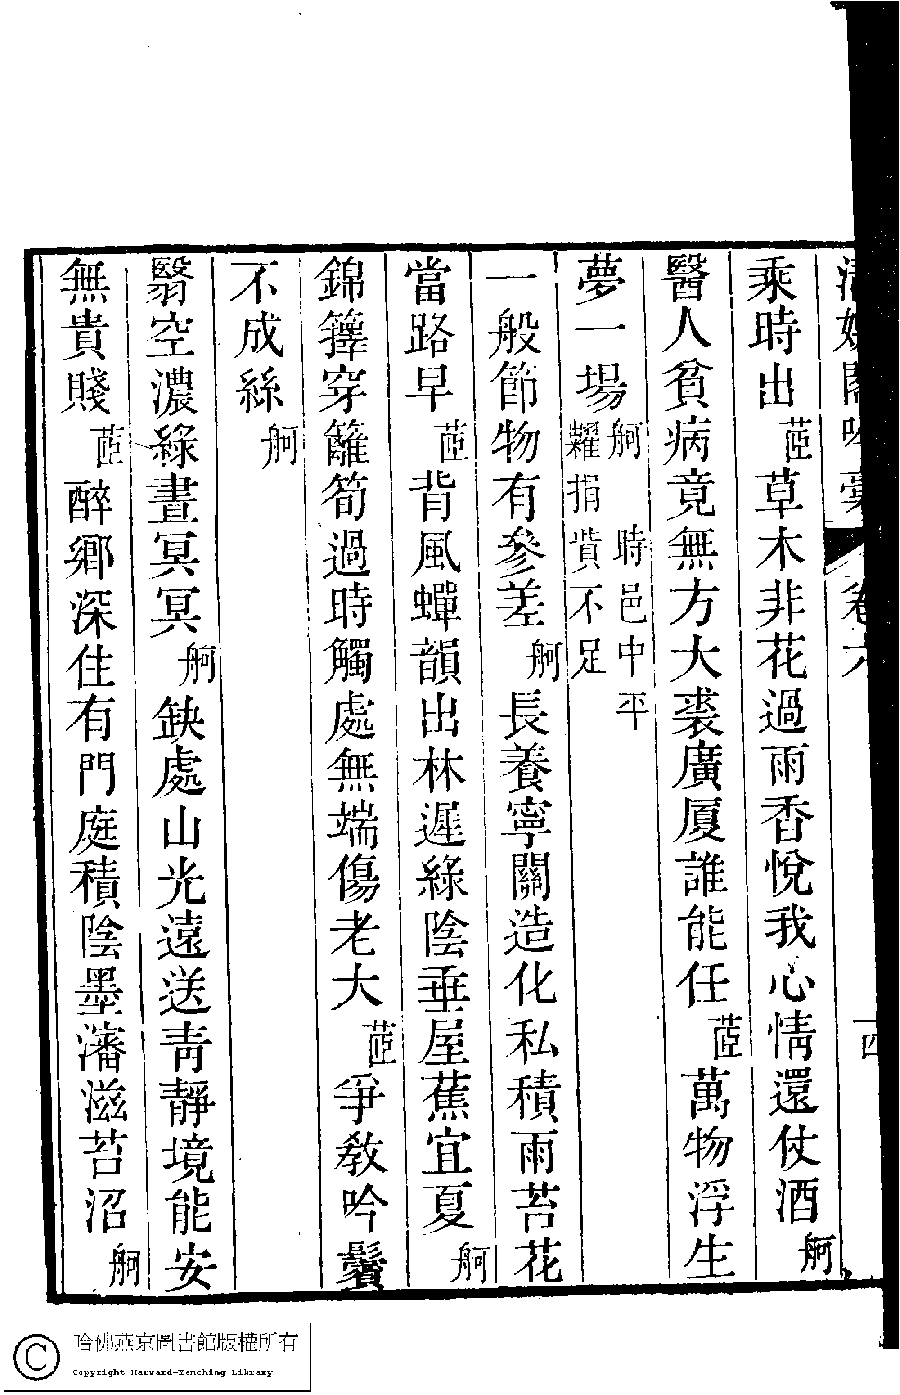 清娛閣吟稾 卷六 四
乘時出茝草木非花過雨香悅我心情還仗酒舸
醫人貧病竟無方大裘廣厦誰能任茝萬物浮生
夢一場舸 時邑中平
糶捐貲不足
一般節物有參差舸長養寧關造化私積雨苔花
當路早茝背風蟬韻出林遲綠陰垂屋蕉宜夏舸
錦籜穿籬筍過時觸處無端傷老大茝爭敎吟鬢
不成絲舸
翳空濃綠晝冥冥舸缺處山光遠送靑靜境能安
無貴賤茝醉鄉深住有門庭積陰墨瀋滋苔沼舸
哈佛燕京圖書館版權所有
Copyright Harvard-Yenching Library